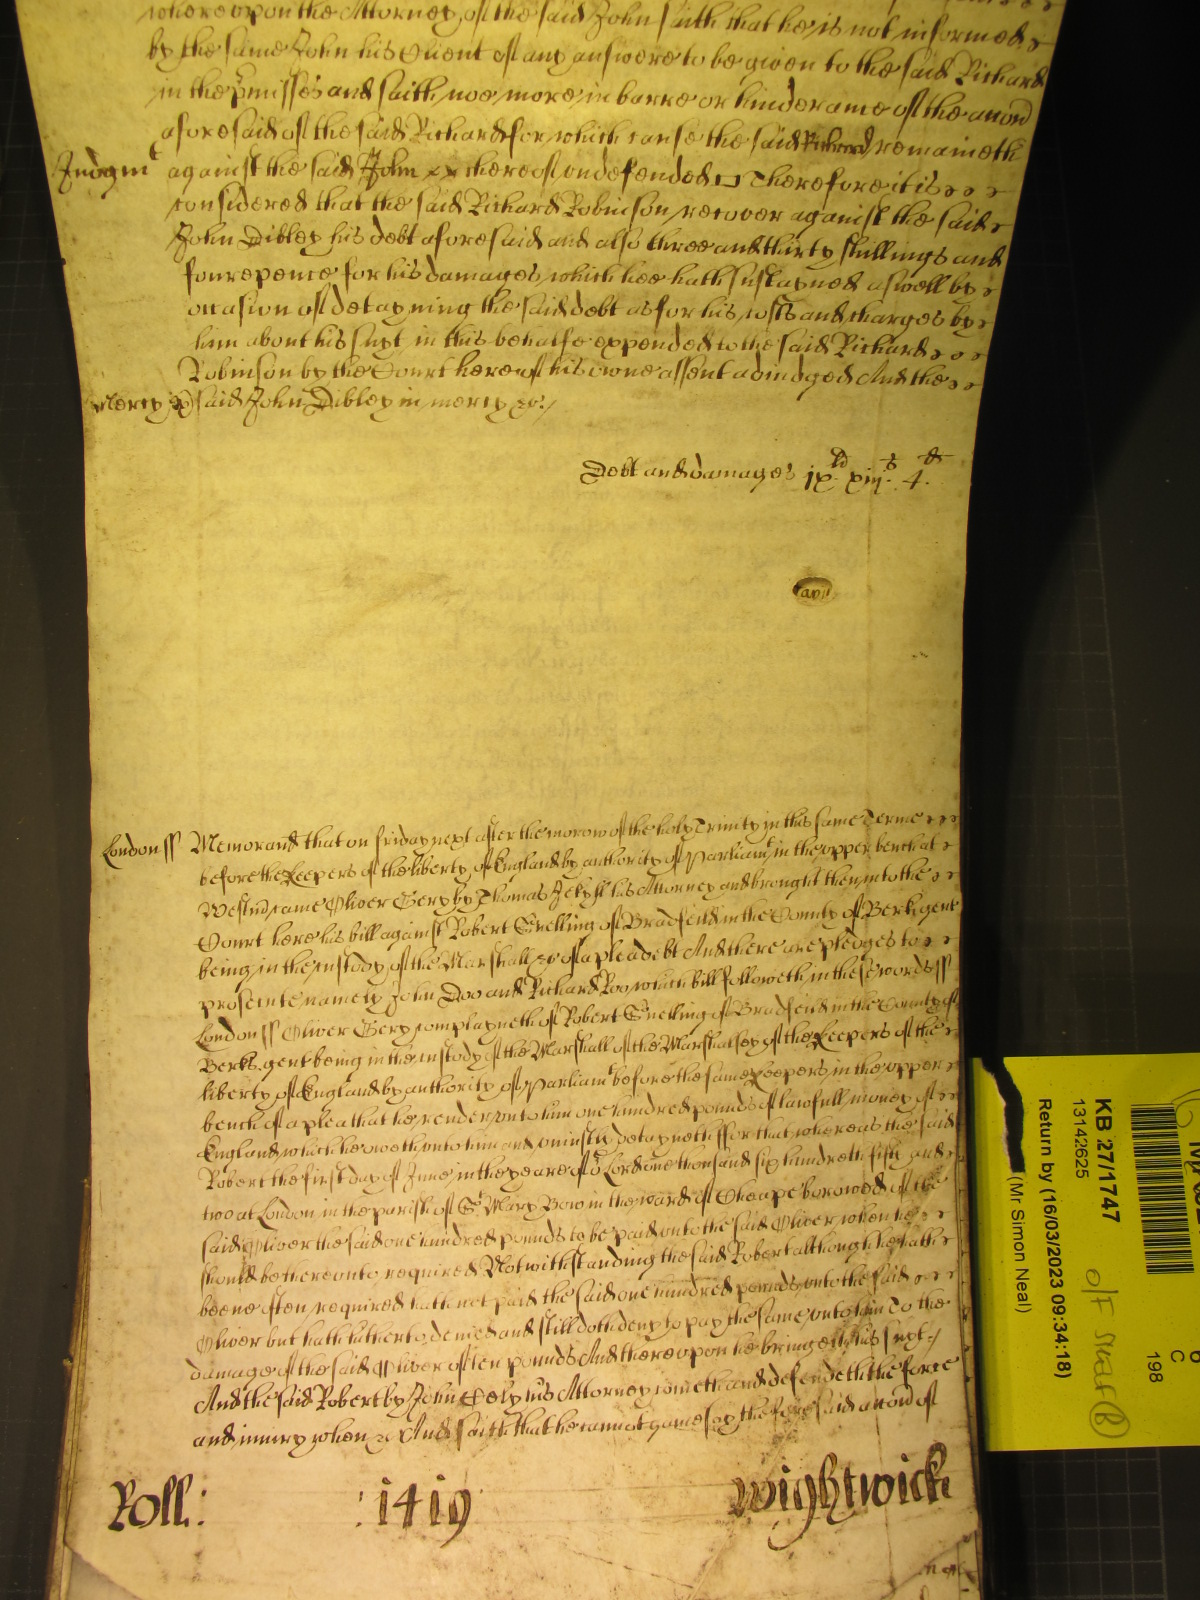 whereupon the Attorney of the said John saith that he is not informed
by the same John his Client of any answere to be given to the said Richard
in the p'misses and saith noe more in barre or hinderance of the accon
aforesaid of the said Richard for which cause the said Richard remaineth
Judgmt against the said John thereof undefended Therefore it is
considered that the said Richard Robinson recover against the said
John Dibley his debt aforesaid and also three and thirty shillings and
fourepence for his damages which hee hath sustayned aswell by
occasion of detayning the said debt as for his costs and charges by
him about his suyt in this behalfe expended to the said Richard
Robinson by the Court here of his owne assent adiudged And the
Mercy said John Dibley in mercy &c.
Debt and damages ix ld xiij s 4 d
London ss Memorand that on friday next after the morow of the holy Trinity in this same Terme
before the Keepers of the liberty of England by authority of Parliamt in the upper bench at
Westm came Oliver Gery by Thomas Jekyll his Attorney and brought then into the
Court here his bill against Robert Snelling of Bradfeild in the County of Berk gent
being in the custody of the Marshall &c of a plea debt And there are pledges to
prosecute namely John Doo and Richard Roo which bill followeth in these words ss
London ss Oliver Gery complayneth of Robert Snelling of Bradfeild in the County of
Berks gent being in the custody of the Marshall of the Marshalsey of the Keepers of the
liberty of England by authority of Parliamt before the same Keepers in the upper
bench of a plea that he render unto him one hundred pounds of lawfull money of
England which he oweth unto him and uniustly detayneth ffor that whereas the said
Robert the first day of June in the yeare of or Lord one thousand six hundreth fifty and
two at London in the parish of St Mary Bow in the ward of Cheape borowed of the
said Oliver the said one hundred pounds to be paid unto the said Oliver when he
should be thereunto required Notwithstanding the said Robert although he hath
beene often required hath not paid the said one hundred pounds unto the said
Oliver but hath hitherto denied and still doth deny to pay the same unto him To the
damage of the said Oliver of ten pounds And thereupon he bringeth his suyt
And the said Robert by John his Attorney cometh and defendeth the force
and iniury when &c And saith that he cannot gainesay the foresaid accon of
Roll: : 1419 Wightwick
KB 27/1747
13142625
(Mr Simon Neal)
Return by (16/03/2023 09:34:18)
198
C